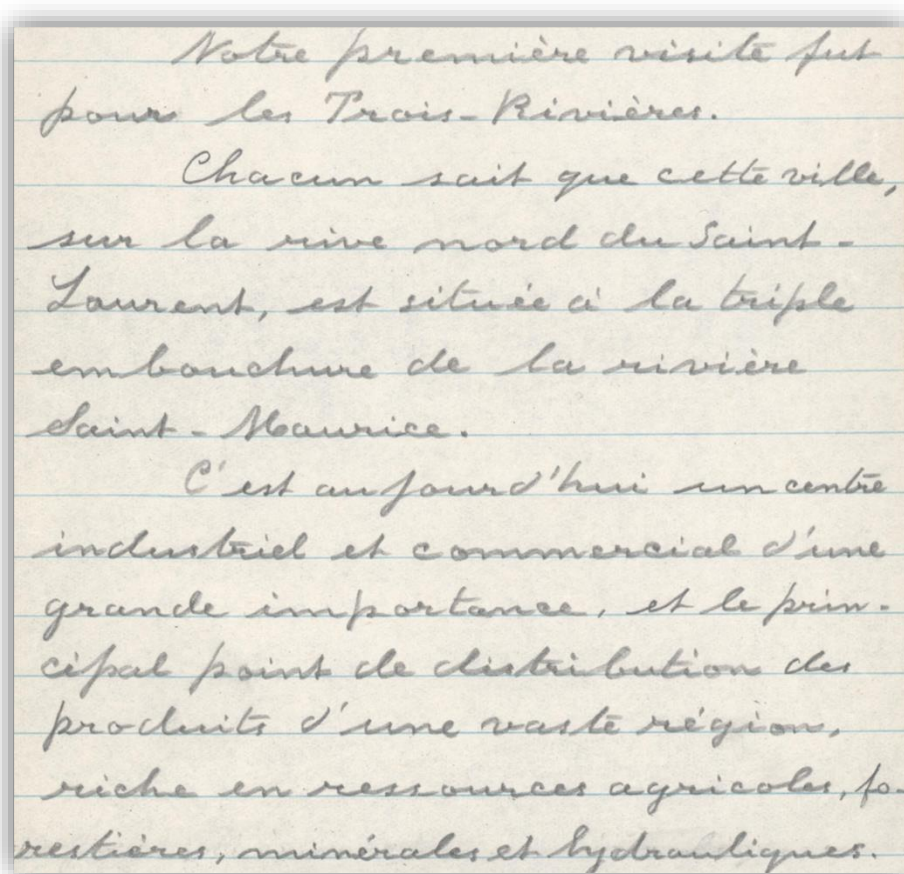 Notre première visite fut
pour les Trois-Rivières.
Chacun sait que cette ville,
sur la rive nord du Saint-
Laurent, est située à la triple
embouchure de la rivière
Saint-Maurice.
C'est aujourd'hui un centre
industriel et commercial d'une
grande importance, et le prin-
cipal point de distribution des
produits d'une vaste région,
riche en ressources agricoles, fo-
restières, minérales et hydrauliques.